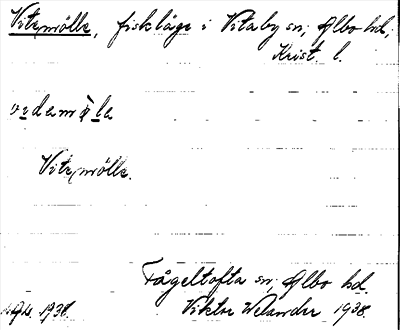 Vitemölle, fiskläge i Vitaby sn; Albo hd;
Krist. l.
vidamöla
Vitemölle.
Fågeltofta sn; Albo hd.
1938. Viktor Welander 1938.